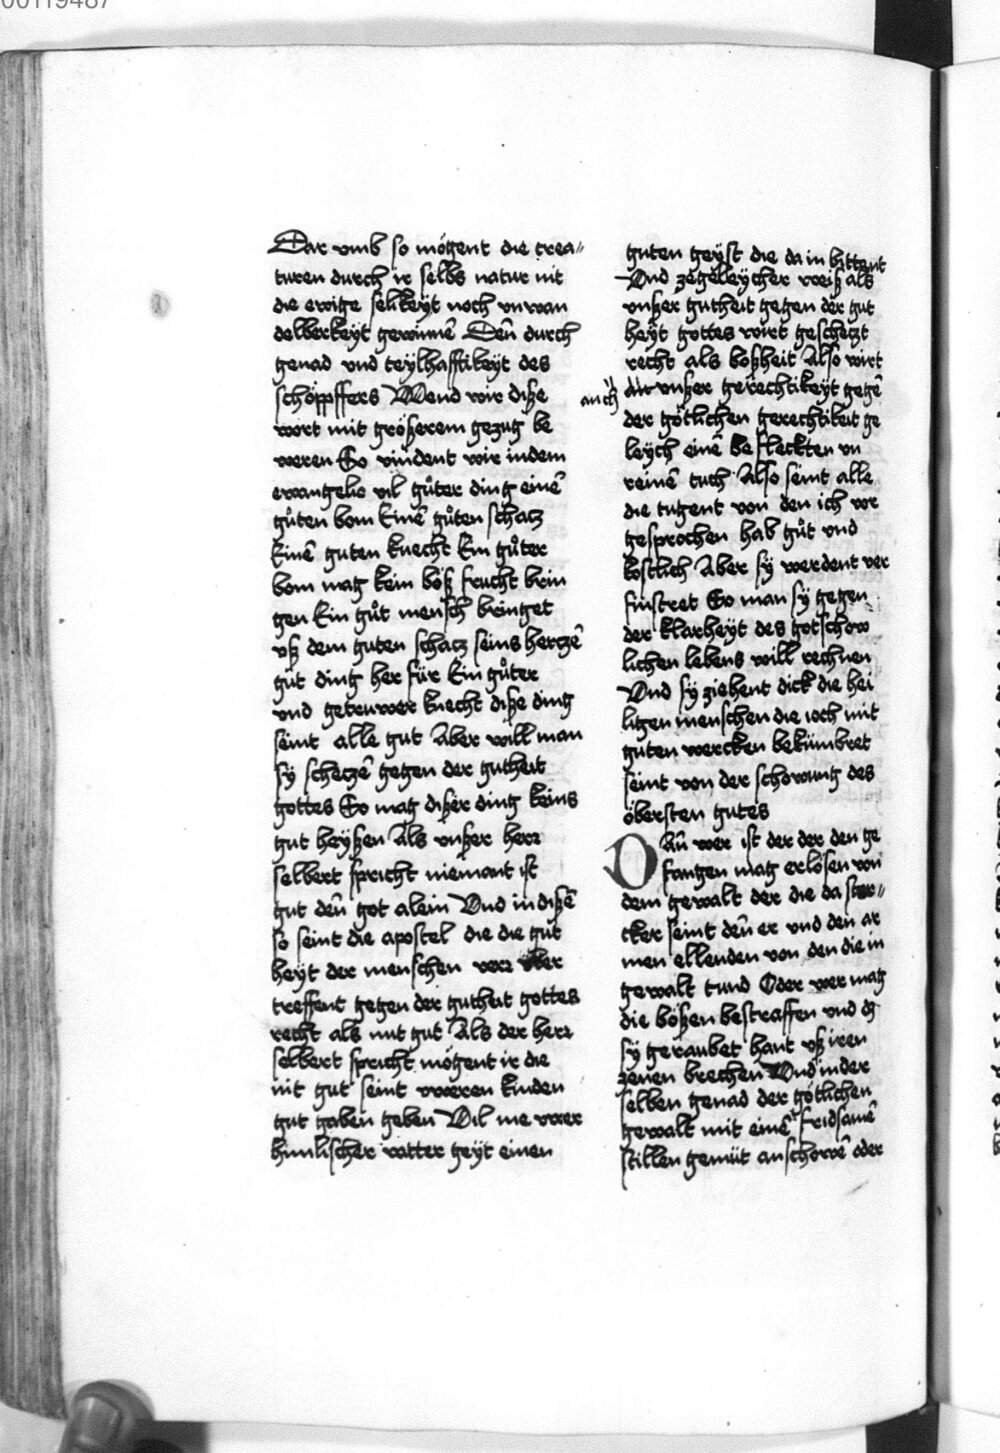 00119487
Dar vmb so mögent die crea⸗
turen durch ir selbs natur nit
die ewige selikeyt noch vnwan
delberkeyt gewinnē Deñ durch
genad vnd teylhafftikeyt des
schöpffers Wend wir diße
wort mit größerem gezug be
weren So vindent wir in dem
ewangelio vil gůter ding einē
gůten bom Einē gůten schatz
Einē guten knecht Ein gůter
bom mag kein böß frucht brin
gen Ein gůt mensch bringet
vß dem guten schatz seins hertzē
gůt ding her für Ein gůter
vnd getruwer knecht diße ding
seint alle gut Aber will man
sy schetzē gegen der gutheit
gottes So mag dißer ding keins
gut heyßen Als vnßer herr
selbert spricht niemant ist
gut deñ got alein Vnd in dißē
so seint die apostel die die gůt
heyt der menschen verr vber
treffent gegen der gutheit gottes
recht als nut gut Als der herr
selbert spricht mögent ir die
nit gut seint vweren kinden
gut gaben geben Wil me vwer
himlischer vatter geyt einen
guten geyst die da in bittent
Vnd zegeleycher weiß als
vnßer gutheit gegen der gut
heyt gottes wirt geschetzt
recht als boßheit Also wirt
auch vnßer gerechtikeyt gegē
der götlichen gerechtikeit ge
leych einē befleckten vn
reinē tuch Also seint alle
die tugent von den ich vor
gesprochen hab gůt vnd
kostlich Aber sy werdent ver
finstret So man sy gegen
der klarheyt des gotschow
lichen lebens will rechnen
Vnd sy ziehent dick die hei
ligen menschen die ioch mit
guten wercken bekümbret
seint von der schowung des
öbersten gutes
Dañ wer ist der der den ge
fangen mag erlösen von
dem gewalt der die da ster⸗
cker seint deñ er vnd den ar
men ellenden von den die in
gewalt tund Oder wer mag
die bößen bestraffen vnd dz
sy geraubet hant vß iren
zenen brechen Vnd in der
selben genad der götlichen
gewalt mit einē fridsamē
stillen gemüt anschowē oder